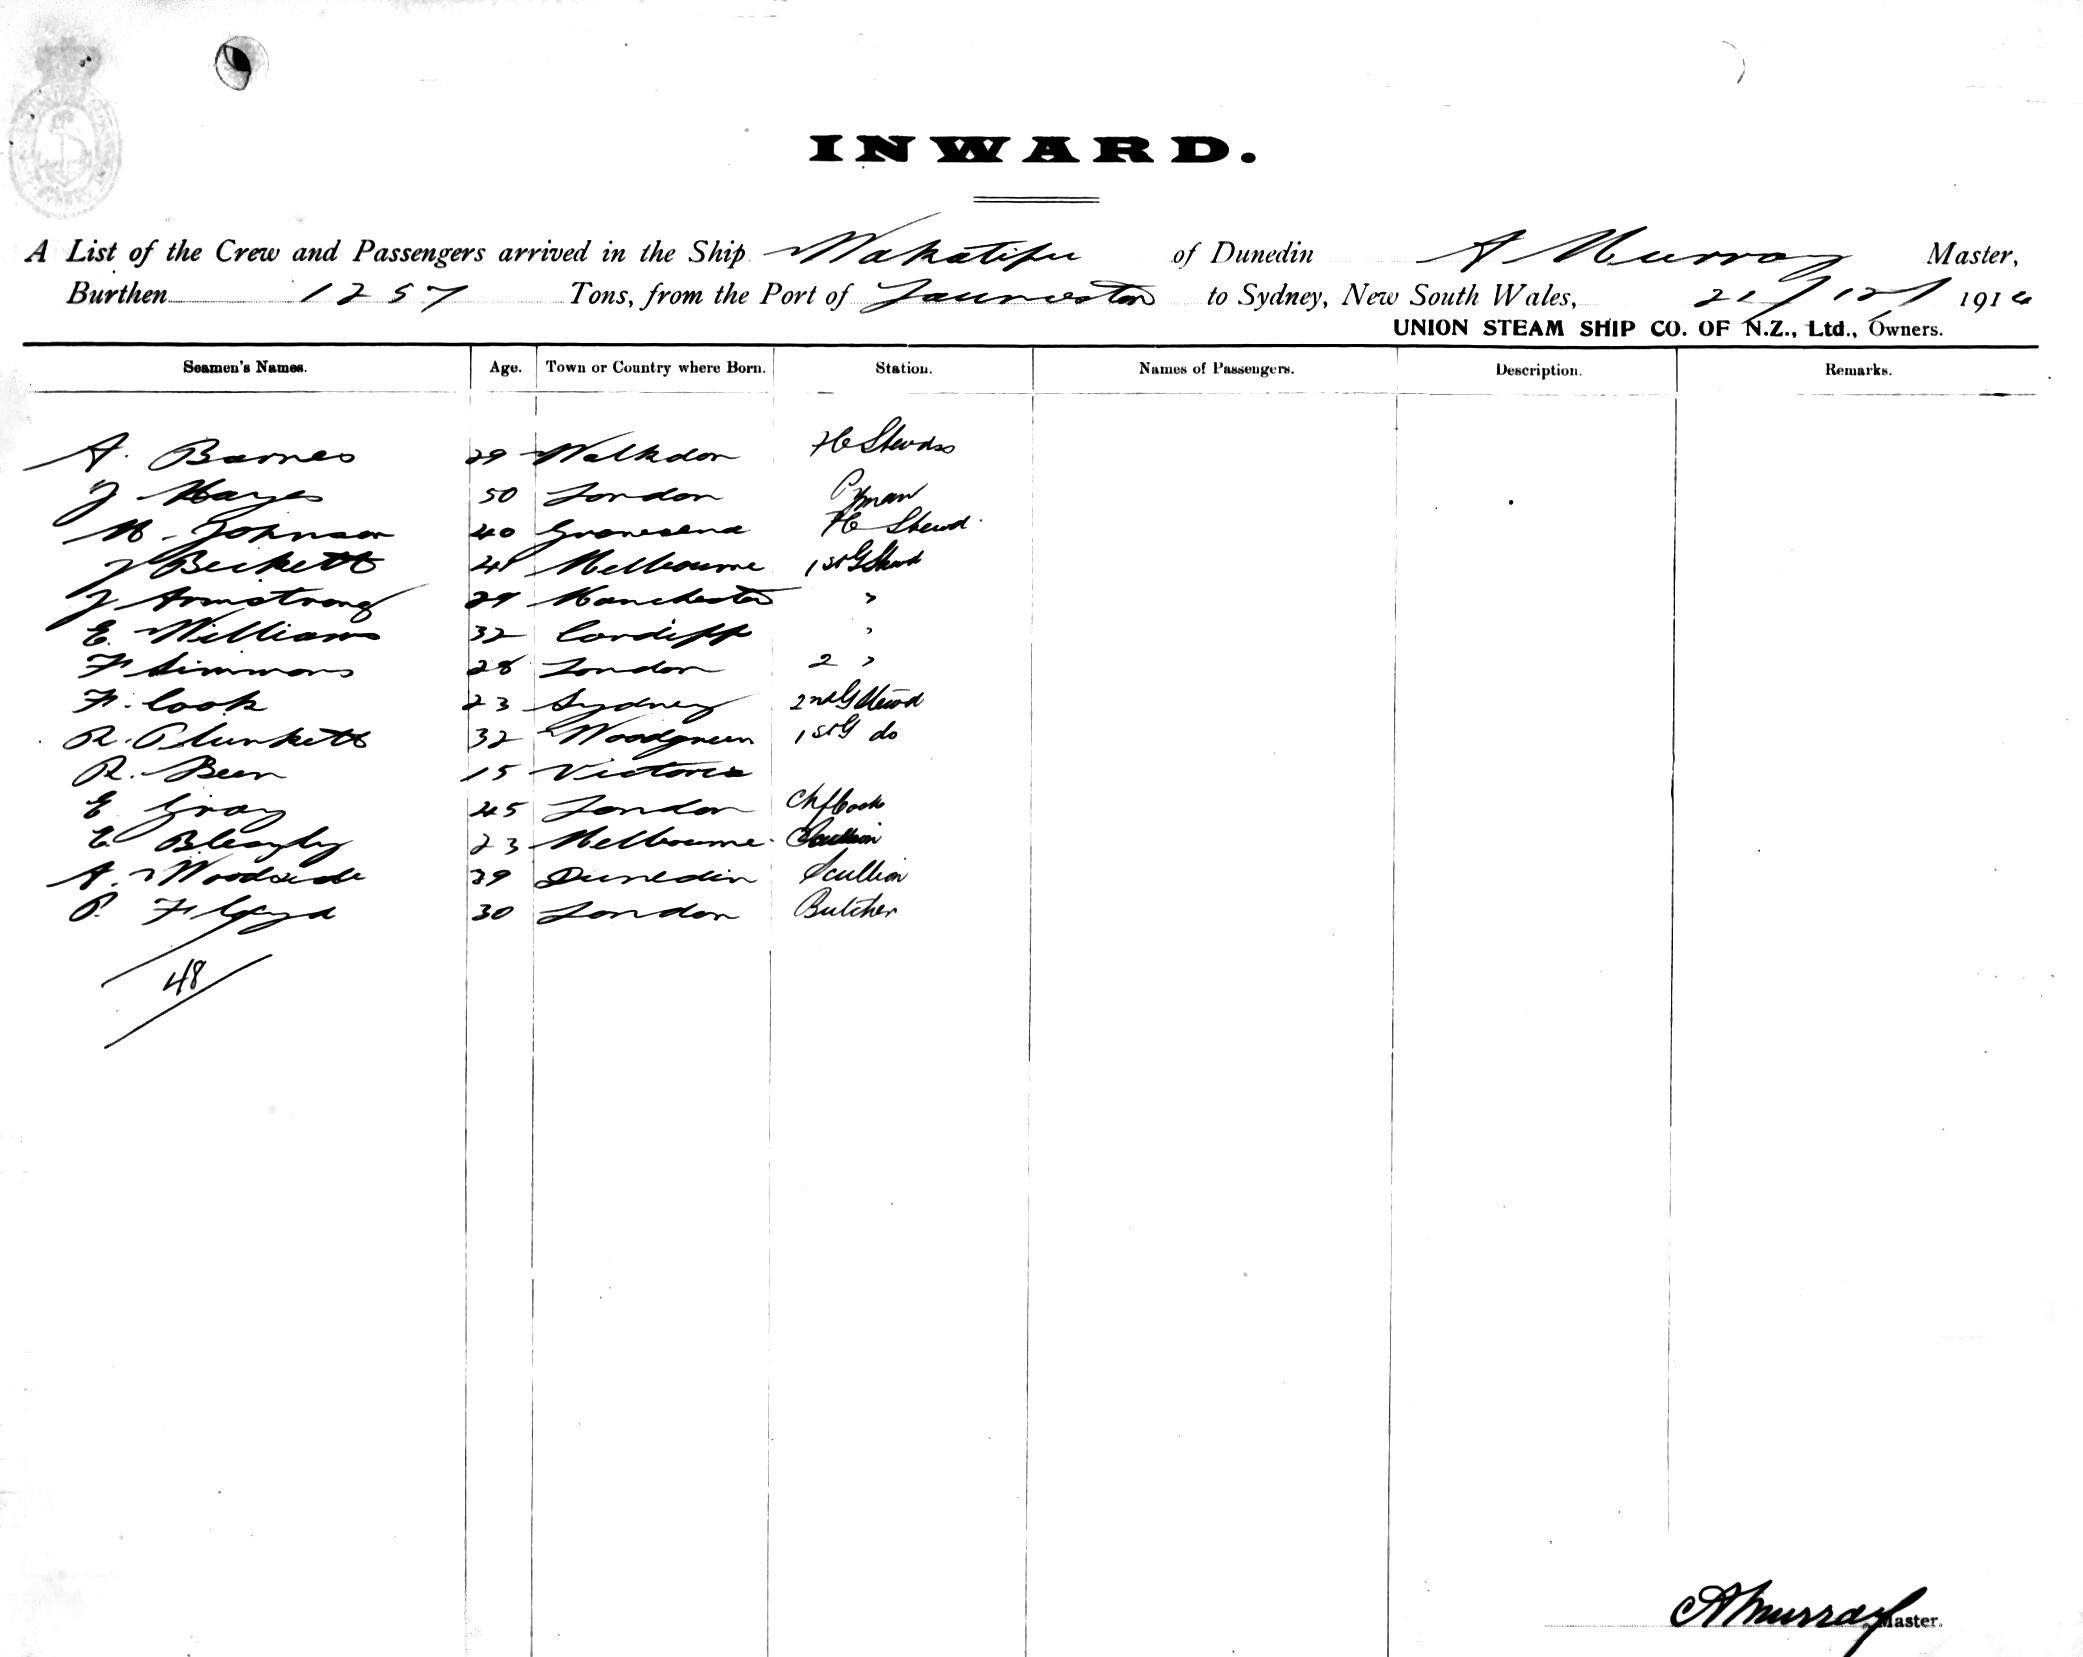 INWARD.
A List of the Crew and Passengers arrived in the Ship Wakatipu of Dunedin A Murray Master,
Burthen 1257 Tons, from the Port of Launceston to Sydney, New South Wales, 21/12/1914
UNION STEAM SHIP CO. OF N.Z., Ltd., Owners.
Seamen's Names. Age. Town or Country where Born. Station. Names of Passengers. Description. Remarks.
A. Barnes 29 Walkdon
J Hayes 50 London Pyman
W. Johnson 40 Gravesend Stewd.
J Beckett 41 Melbourne 1st G Stewd
J Armstrong 29 Manchester "
E. Williams 32 Cardiff "
F Simmons 28 London 2 "
F. Cook 23 Sydney 2nd G Stewd
R. Plunkett 32 Woodgreen 1st G do
R. Beer 15 Victoria
E Gray 45 London Chf Cook
E. Bleazby 23 Melbourne. Scullion
A. Woodside 29 Dunedin Scullion
P. Floyd 30 London Butcher
48
A Murray Master.